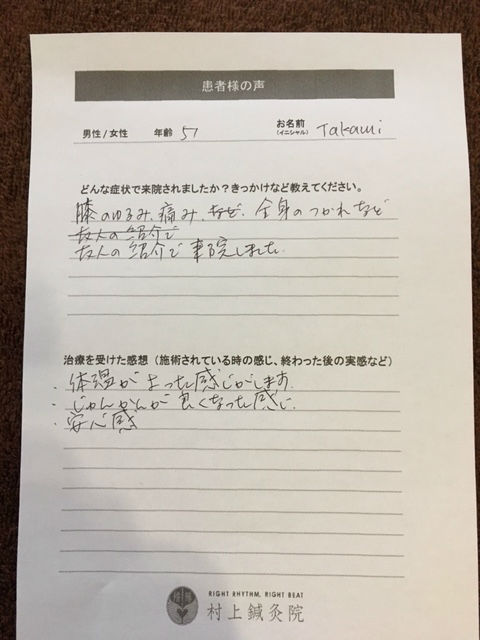 患者様の声
男性/女性 年齢 51 お名前(イニシャル) Takami
どんな症状で来院されましたか?きっかけなど教えてください。
膝のゆるみ、痛み、など、全身のつかれなど
友人の紹介で
友人の紹介で来院しました。
治療を受けた感想(施術されている時の感じ、終わった後の実感など)
・体温が上った感じがします。
・じゅんかんが良くなった感じ。
・安心感
RIGHT RHYTHM, RIGHT BEAT
村上鍼灸院